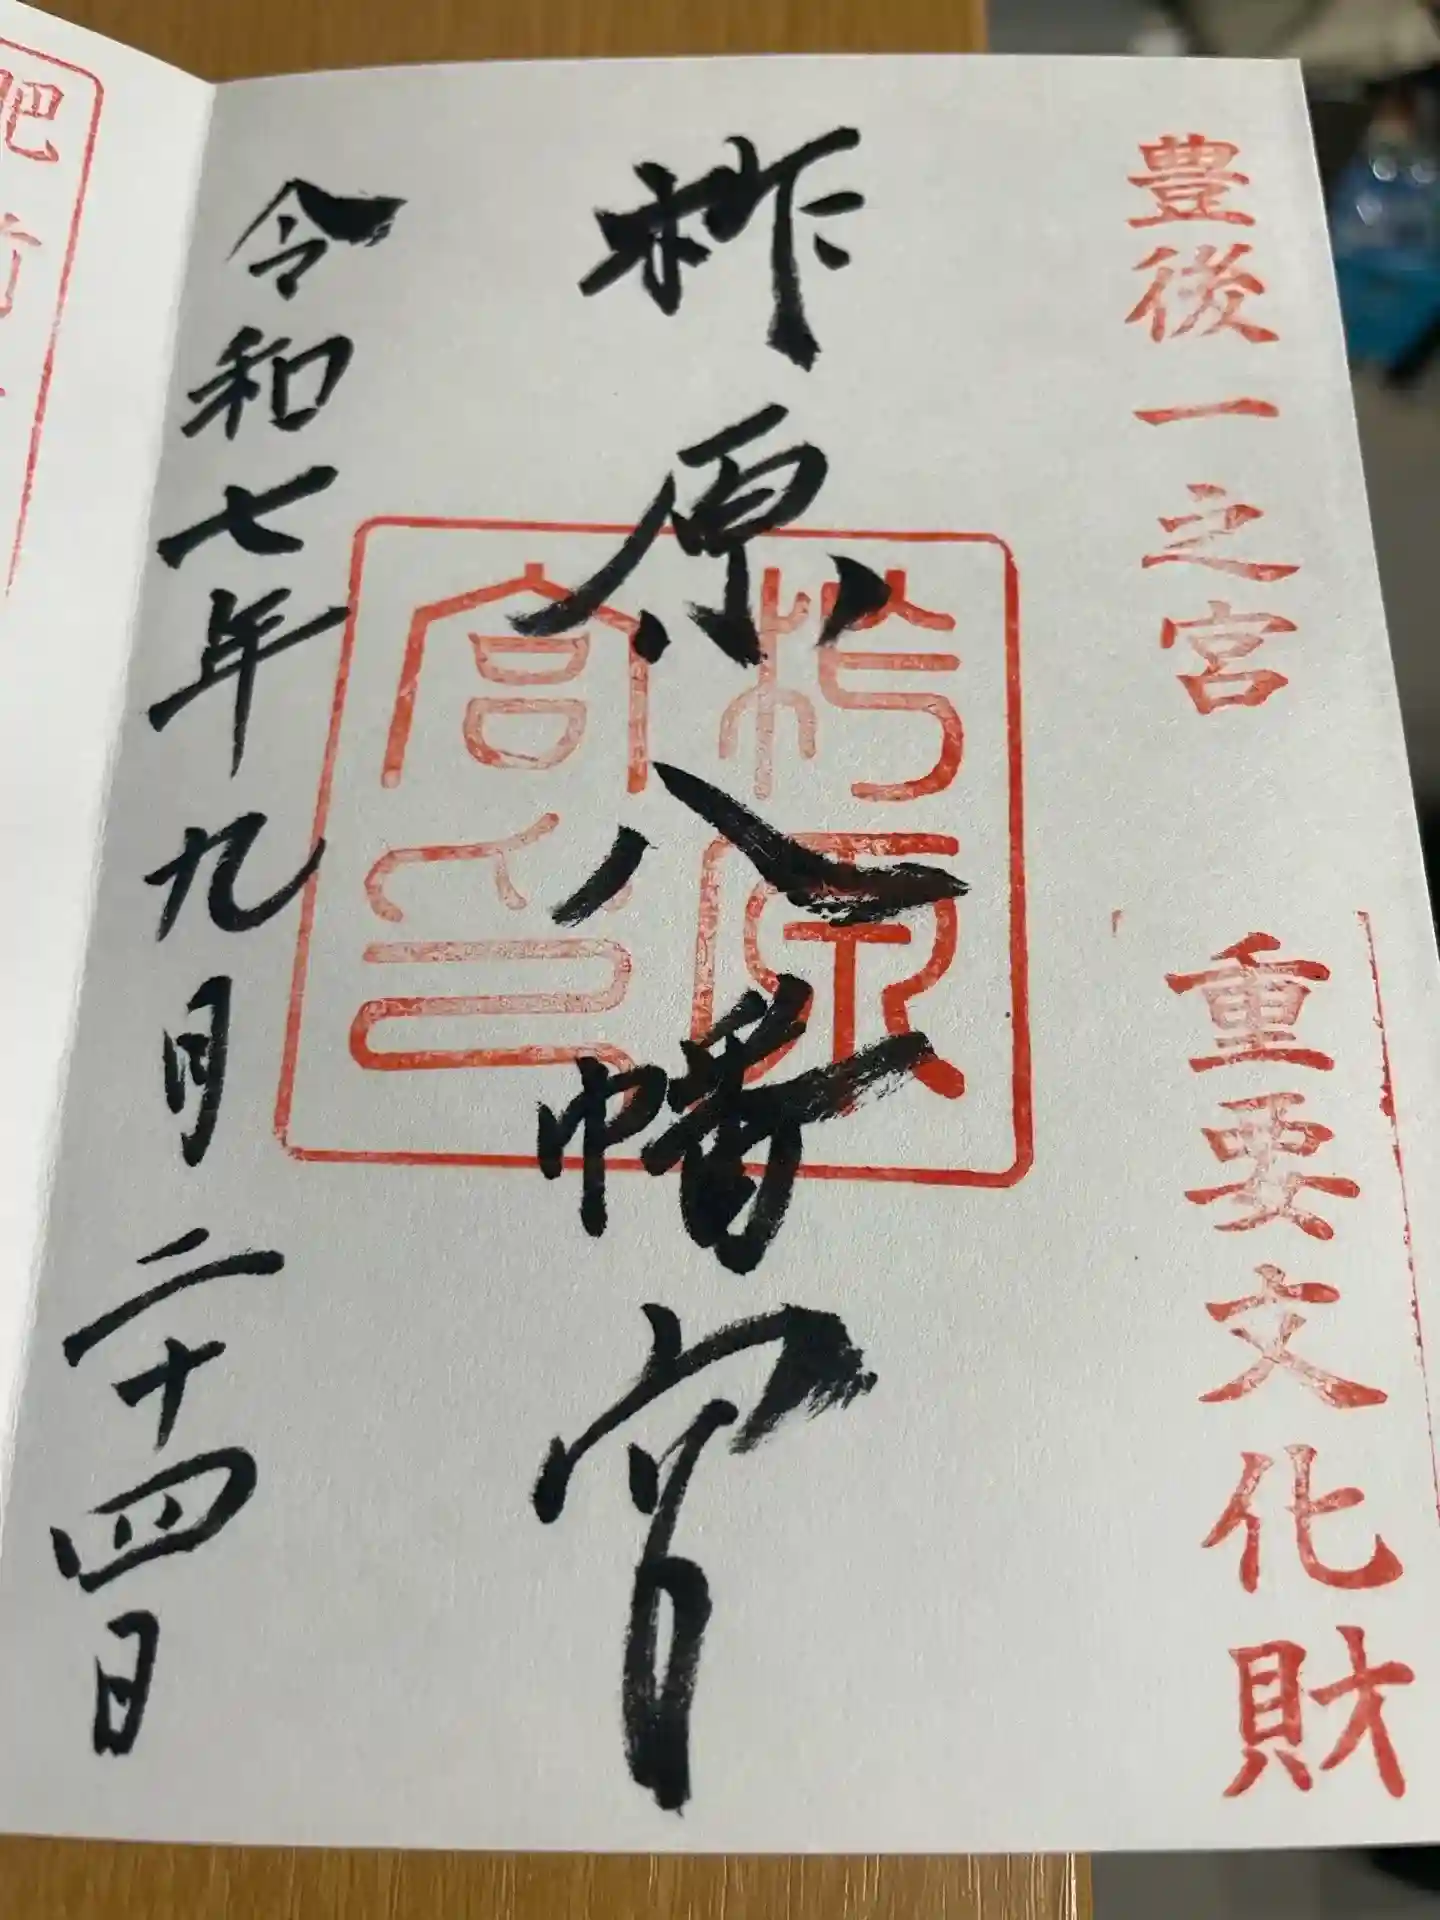 豊後一之宮 重要文化財
柞原八幡宮
柞原宮印
令和七年九月二十四日
肥